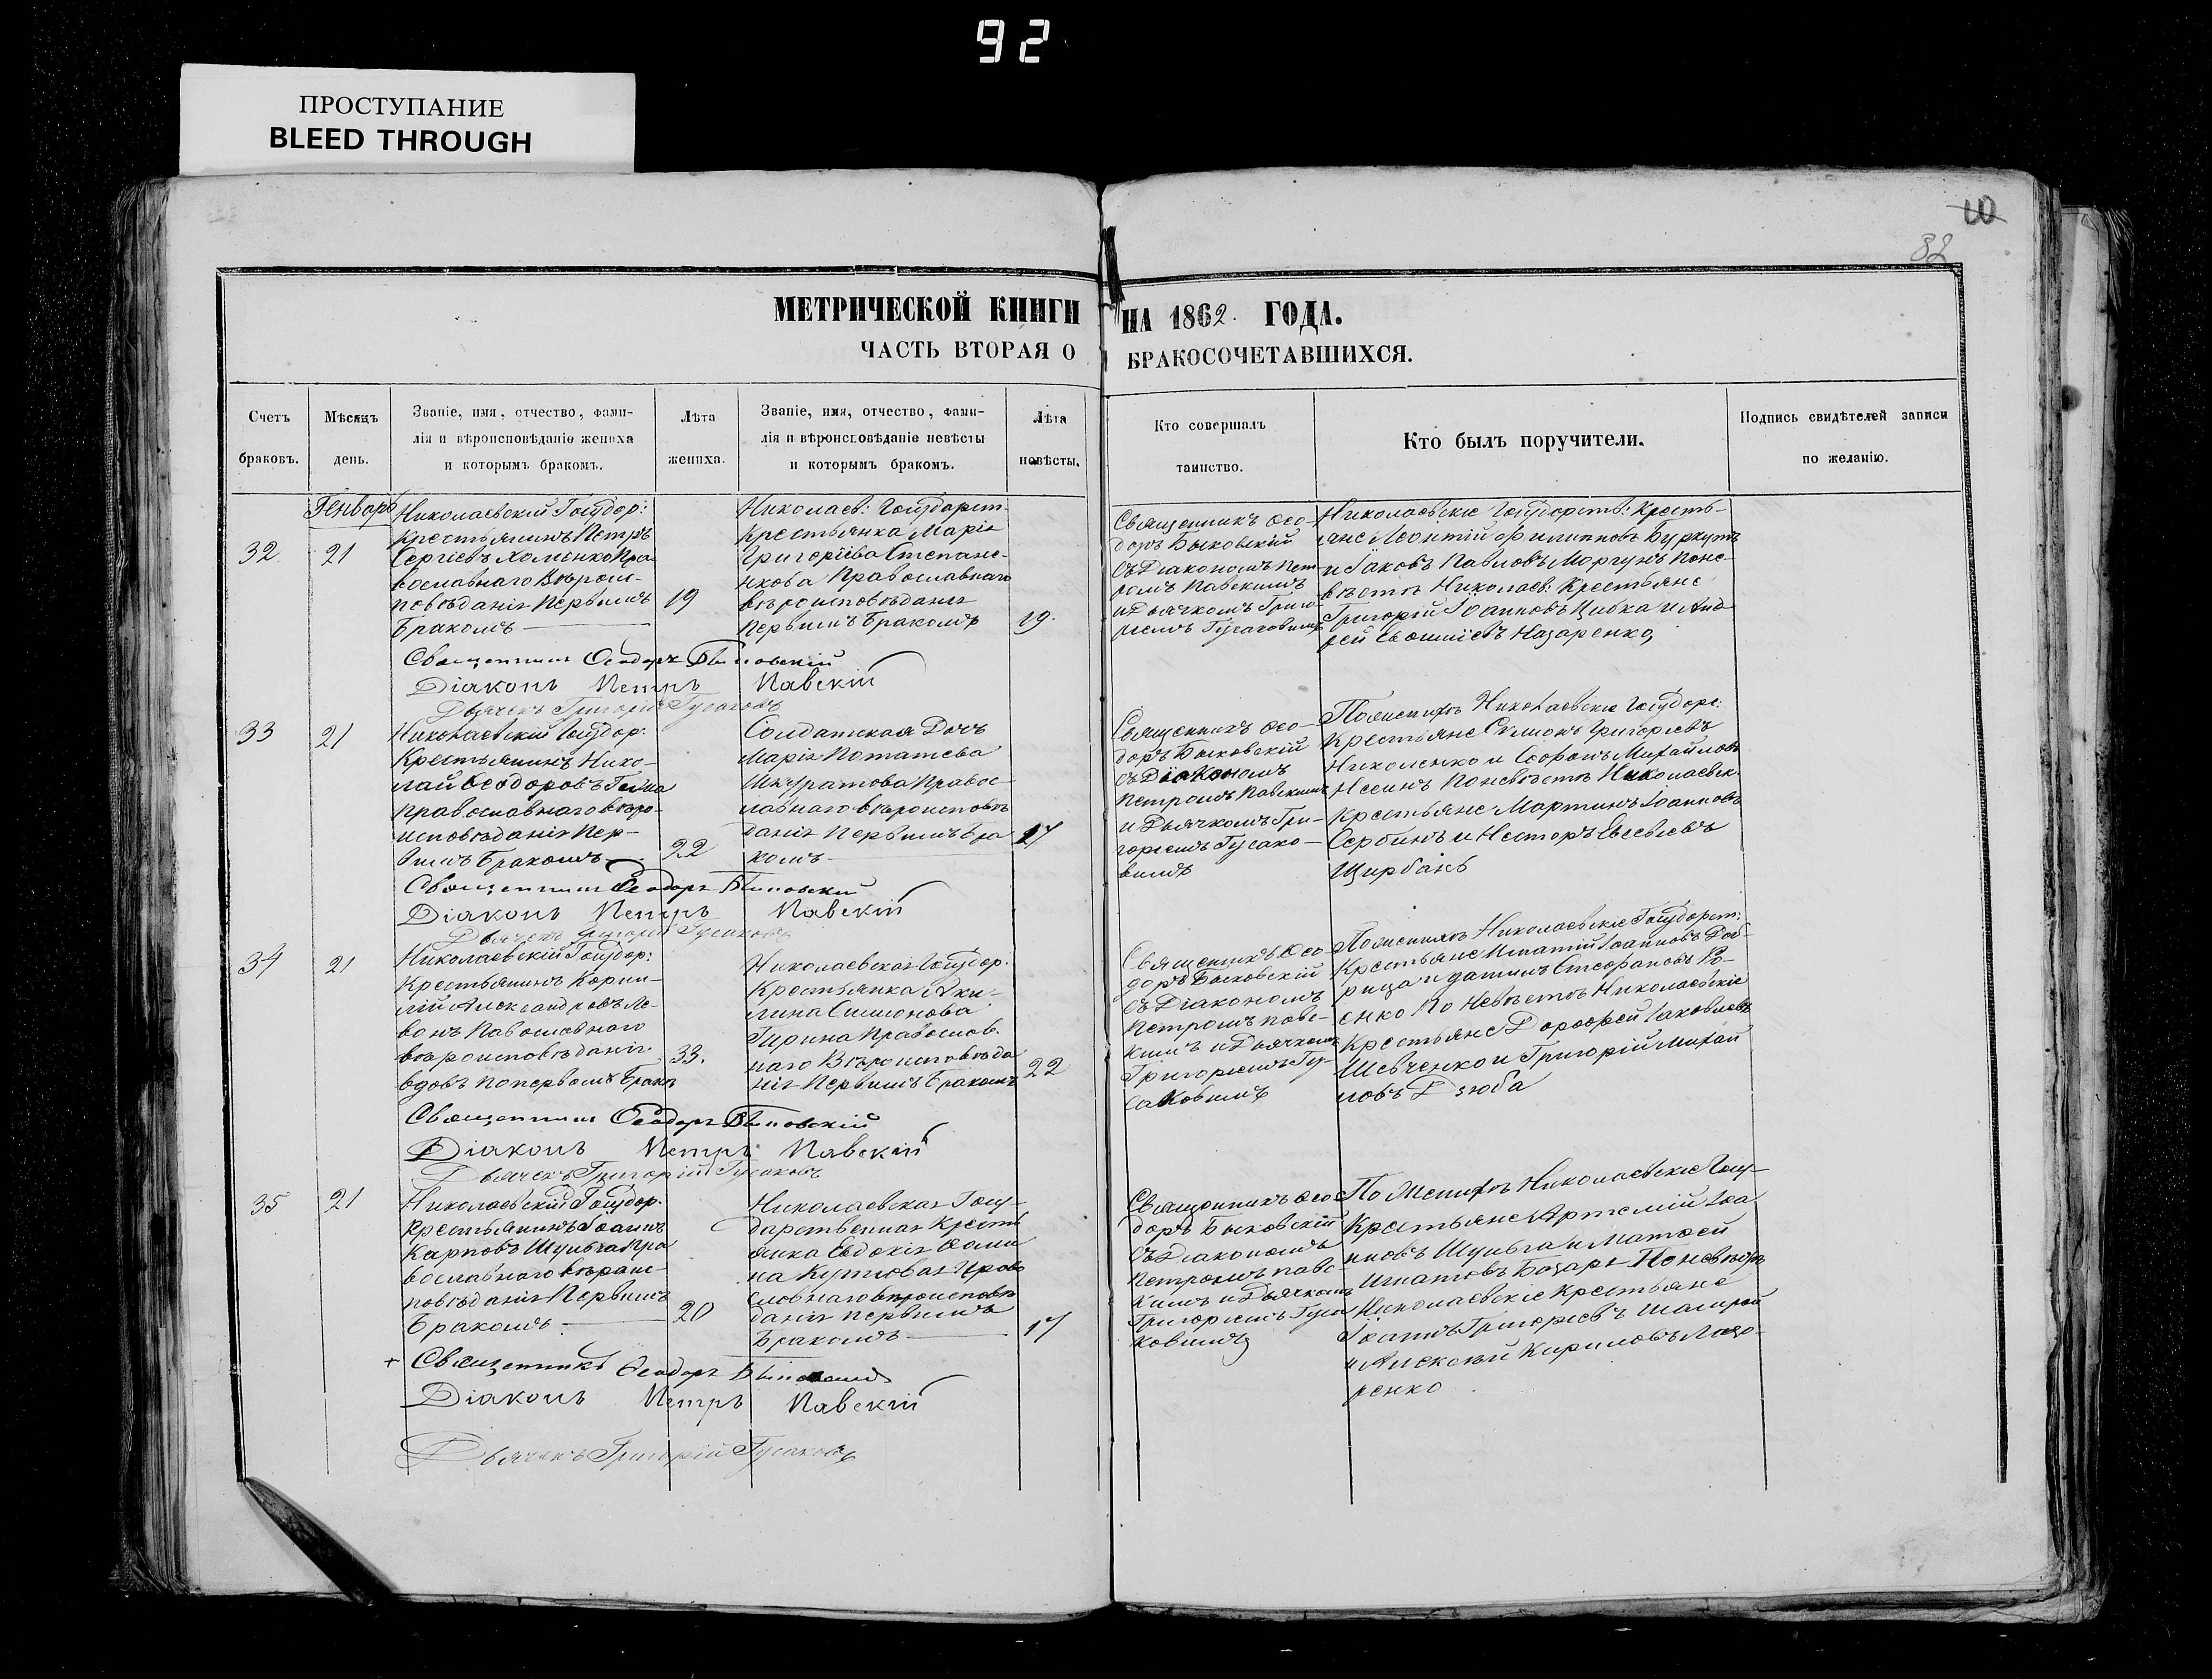 92
ПРОСТУПАНИЕ
BLEED THROUGH
10
82
МЕТРИЧЕСКОЙ КНИГИ НА 1862. ГОДА.
ЧАСТЬ ВТОРАЯ О БРАКОСОЧЕТАВШИХСЯ.
Счетъ
браковъ.
Мѣсяцъ
день.
Званіе, имя, отчество, фами-
лія и вѣроисповѣданіе жениха
и которымъ бракомъ.
Лѣта
жениха.
Званіе, имя, отчество, фами-
лія и вѣроисповѣданіе невѣсты
и которымъ бракомъ.
Лѣта
невѣсты.
Кто совершалъ
таинство.
Кто былъ поручители.
Подпись свидѣтелей записи
по желанію.
Генварь
32
21
Николаевскій Госудор:
Крестьянинъ Петръ
Сергіевъ Хоменко Пра
вославнаго Вѣроис-
повѣданія Первымъ
Бракомъ
19
Николаев: Государст.
Крестьянка Марія
Григоріева Степане-
нкова Православнаго
вѣроисповѣданія
Первымъ Бракомъ
19.
Священникъ Ѳео-
доръ Быковскій
съ Діакономъ Пет
ромъ Павскимъ
и Дьячкомъ Григо
ріемъ Гусаковымъ
Николаевскіе Государств: Кресть-
яне Леонтій Филиповъ Буркутъ
и Іаковъ Павловъ Моргунъ По не-
вѣстѣ Николаев: Крестьяне
Григорій Іоанновъ Цибка и Анд
рей Евфиміевъ Назаренко
Священникъ Ѳеодоръ Быковскій
Діаконъ Петръ Павскій
Дьячекъ Григорій Гусаковъ
33
21
Николаевскій Госудор:
Крестьянинъ Нико-
лай Ѳеодоровъ
православнаго вѣро-
исповѣданія Пер-
вымъ Бракомъ
22
Солдатская Дочь
Марія Потапіева
Шкуратова Правос-
лавнаго вѣроисповѣ
данія Первымъ Бра
комъ
17
Священникъ Ѳео-
доръ Быковскій
съ Діакономъ
Петромъ Павскимъ
и Дьячкомъ Гри-
горіемъ Гусако-
вымъ
По женихѣ Николаевскіе Госудорс:
Крестьяне Симонъ Григоріевъ
Николенко и Софронъ Михайловъ
По невѣстѣ Николаевск.
Крестьяне Мартинъ Іоанновъ
Сербинъ и Несторъ Евсевіевъ
Щирбанъ
Священникъ Ѳеодоръ Быковскій
Діаконъ Петръ Павскій
Дьячекъ Григорій Гусаковъ
34
21
Николаевскій Госудор:
Крестьянинъ Корни-
лій Александровъ Ле-
вонъ Павославного
вѣроисповѣданія
вдовъ по первомъ Бракѣ
33.
Николаевская Госудор.
Крестьянка Аки-
лина Симионова
Гирина Православ.
наго Вѣроисповѣда
нія Первымъ Бракомъ
22
Священникъ Ѳео-
доръ Быковскій
съ Діакономъ
Петромъ Павс-
кимъ и Дьячкомъ
Григоріемъ Гу-
саковымъ
По женихѣ Николаевскіе Государст:
Крестьяне Игнатій Іоанновъ
Стефановъ
енко По Невѣстѣ Николаевскіе
Крестьяне Дорофей Іаковлевъ
Шевченко и Григорій Михай
ловъ Дзюба
Священникъ Ѳеодоръ Быковскій
Діаконъ Петръ Павскій
Дьячекъ Григорій Гусаковъ
35
21
Николаевскій Госудор.
Крестьянинъ Іоаннъ
Карповъ Шульга Пра
вославнаго вѣроис-
повѣданія Первымъ
Бракомъ
20
Николаевская Госу-
дарственная Кресть
янка Евдокія Ѳоми
на Куцовая Право
славнаго вѣроисповѣ
данія первымъ
Бракомъ
17
Священникъ Ѳео
доръ Быковскій
съ Діакономъ
Петромъ Павс
кимъ и Дьячкомъ
Григоріемъ Гуса
ковымъ
По Женихѣ Николаевскіе Госу-
Крестьяне Артемій Іоа
нновъ Шульга и Матфей
Игнатовъ По невѣстѣ
Николаевскіе Крестьяне
Іоаннъ Григоріевъ
и Алексѣй Кириловъ Лазо-
ренко
+ Священникъ Ѳеодоръ Быковскій
Діаконъ Петръ Павскій
Дьячекъ Григорій Гусаковъ